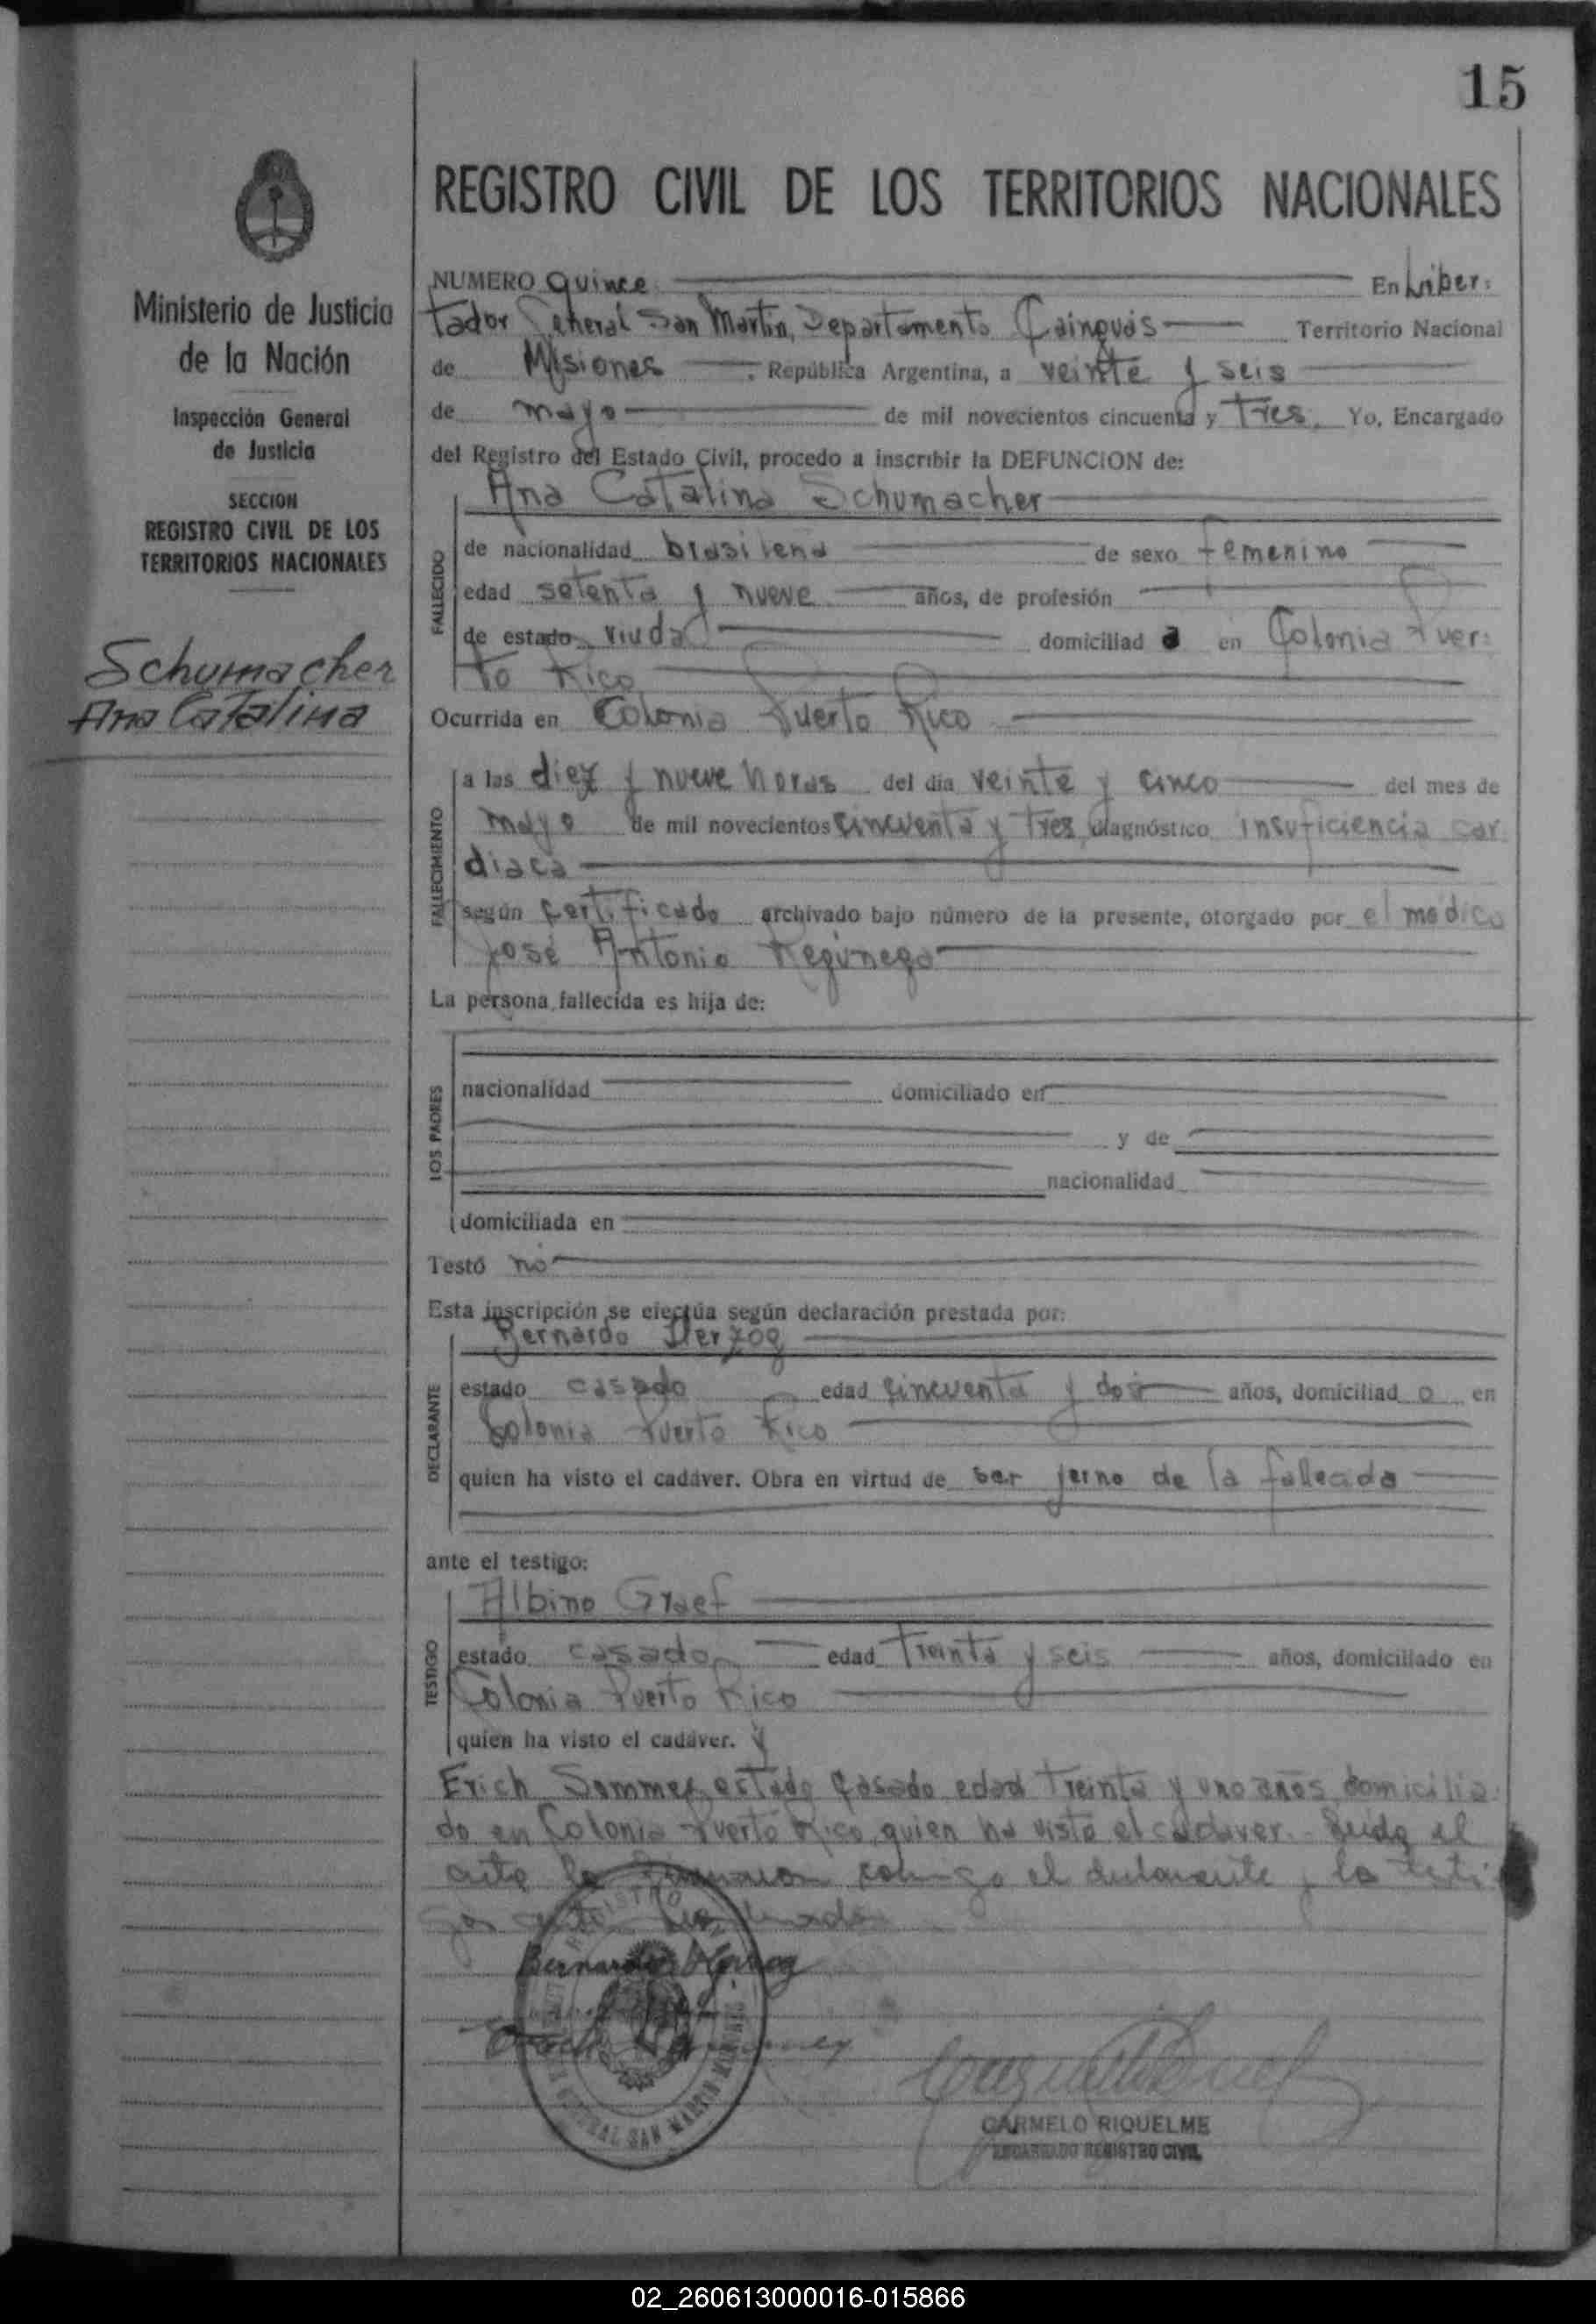 15
REGISTRO CIVIL DE LOS TERRITORIOS NACIONALES
Ministerio de Justicia
de la Nación
Inspección General
de Justicia
SECCION
REGISTRO CIVIL DE LOS
TERRITORIOS NACIONALES
Schumacher
Ana Catalina
NUMERO quince En Liber:
tador General San Martín, Departamento Cainguás Territorio Nacional
de Misiones . República Argentina, a veinte y seis
de mayo de mil novecientos cincuenta y Tres. Yo, Encargado
del Registro del Estado Civil, procedo a inscribir la DEFUNCION de:
Ana Catalina Schumacher
FALLECIDO
de nacionalidad brasilena de sexo femenino
edad setenta y nueve años, de profesión
de estado viuda domiciliad a en Colonia Puer:
to Rico
Ocurrida en Colonia Puerto Rico
FALLECIMIENTO
a las diez y nueve horas del día veinte y cinco del mes de
mayo de mil novecientos cincuenta y Tres, diagnóstico insuficiencia car
diaca
según certificado archivado bajo número de la presente, otorgado por el medico
José Antonio
La persona fallecida es hija de:
LOS PADRES
nacionalidad domiciliado en
y de
nacionalidad
domiciliada en
Testó no
Esta inscripción se efectúa según declaración prestada por:
Bernardo Herzog
DECLARANTE
estado casado edad cincuenta y dos años, domiciliad o en
Colonia Puerto Rico
quien ha visto el cadáver. Obra en virtud de ser jerno de la fallecida
ante el testigo:
Albino Graef
TESTIGO
estado casado edad Treinta y seis años, domiciliado en
Colonia Puerto Rico
quien ha visto el cadáver. y
Erich Sommer, estado casado edad Treinta y uno años, domicilia:
do en Colonia Puerto Rico, quien ha visto el cadaver.- Leida el
acta la firmaron conmigo el declarante y los testi:
gos
Bernardo Herzog
REGISTRO
GENERAL SAN MARTIN
CARMELO RIQUELME
ENCARGADO REGISTRO CIVIL
02_260613000016-015866